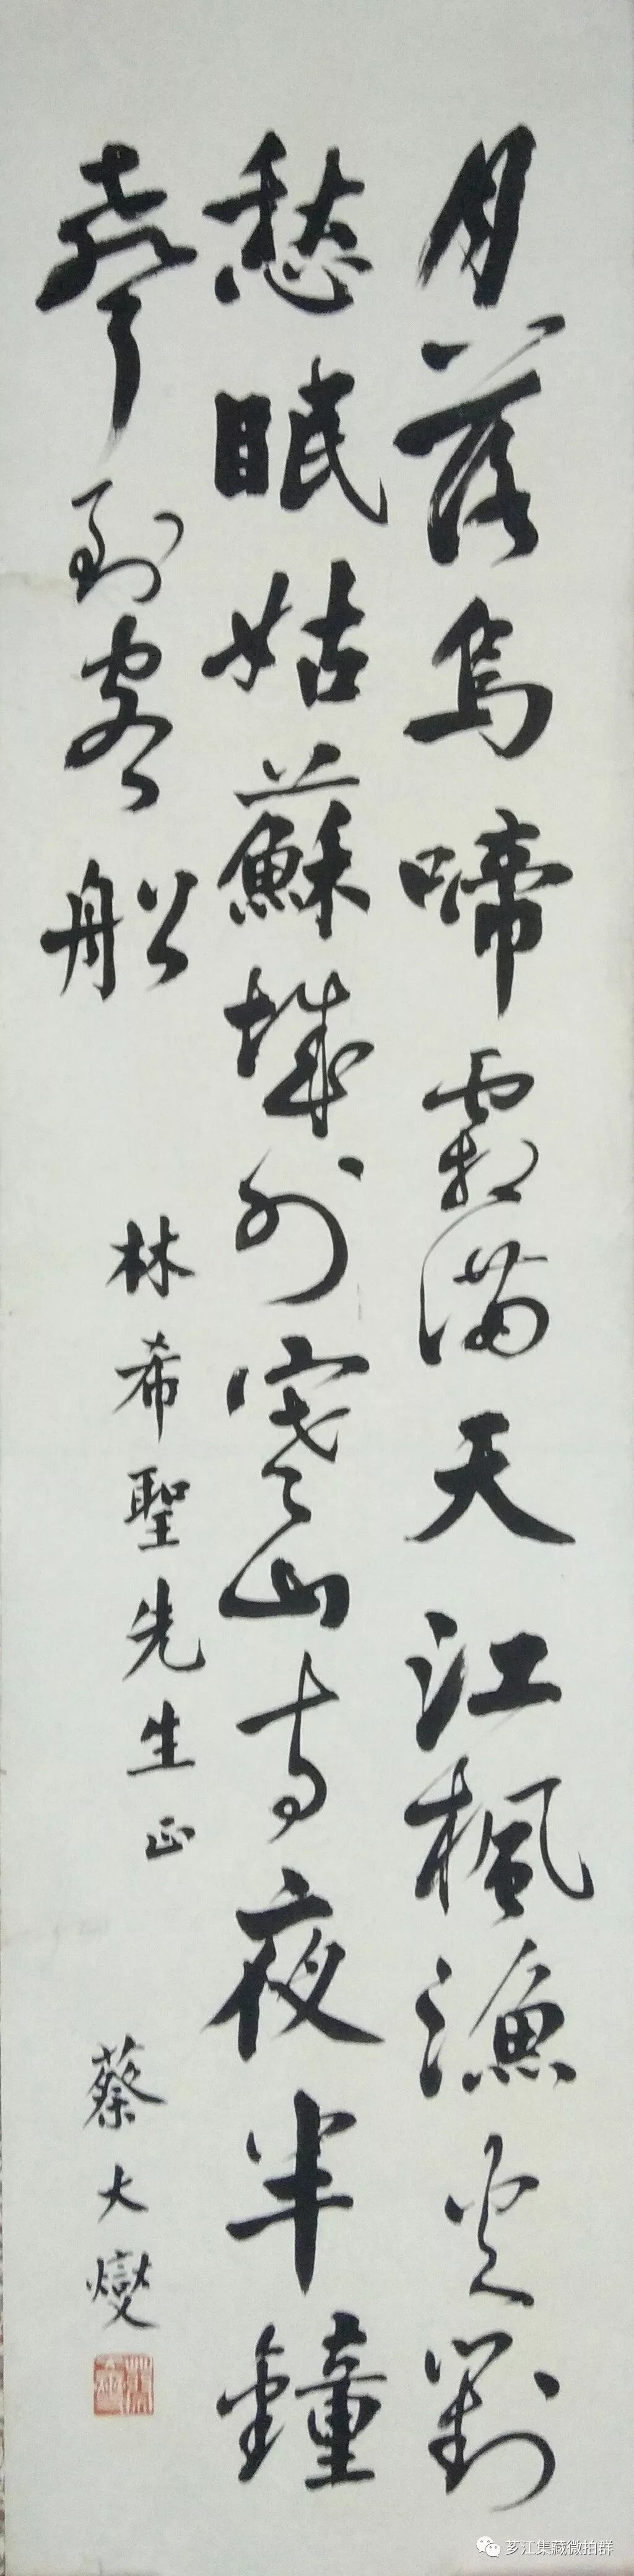 月落烏啼霜滿天江楓漁火對
愁眠姑蘇城外寒山寺夜半鐘
聲到客船
林希聖先生正
蔡大燮
芗江集藏微拍群